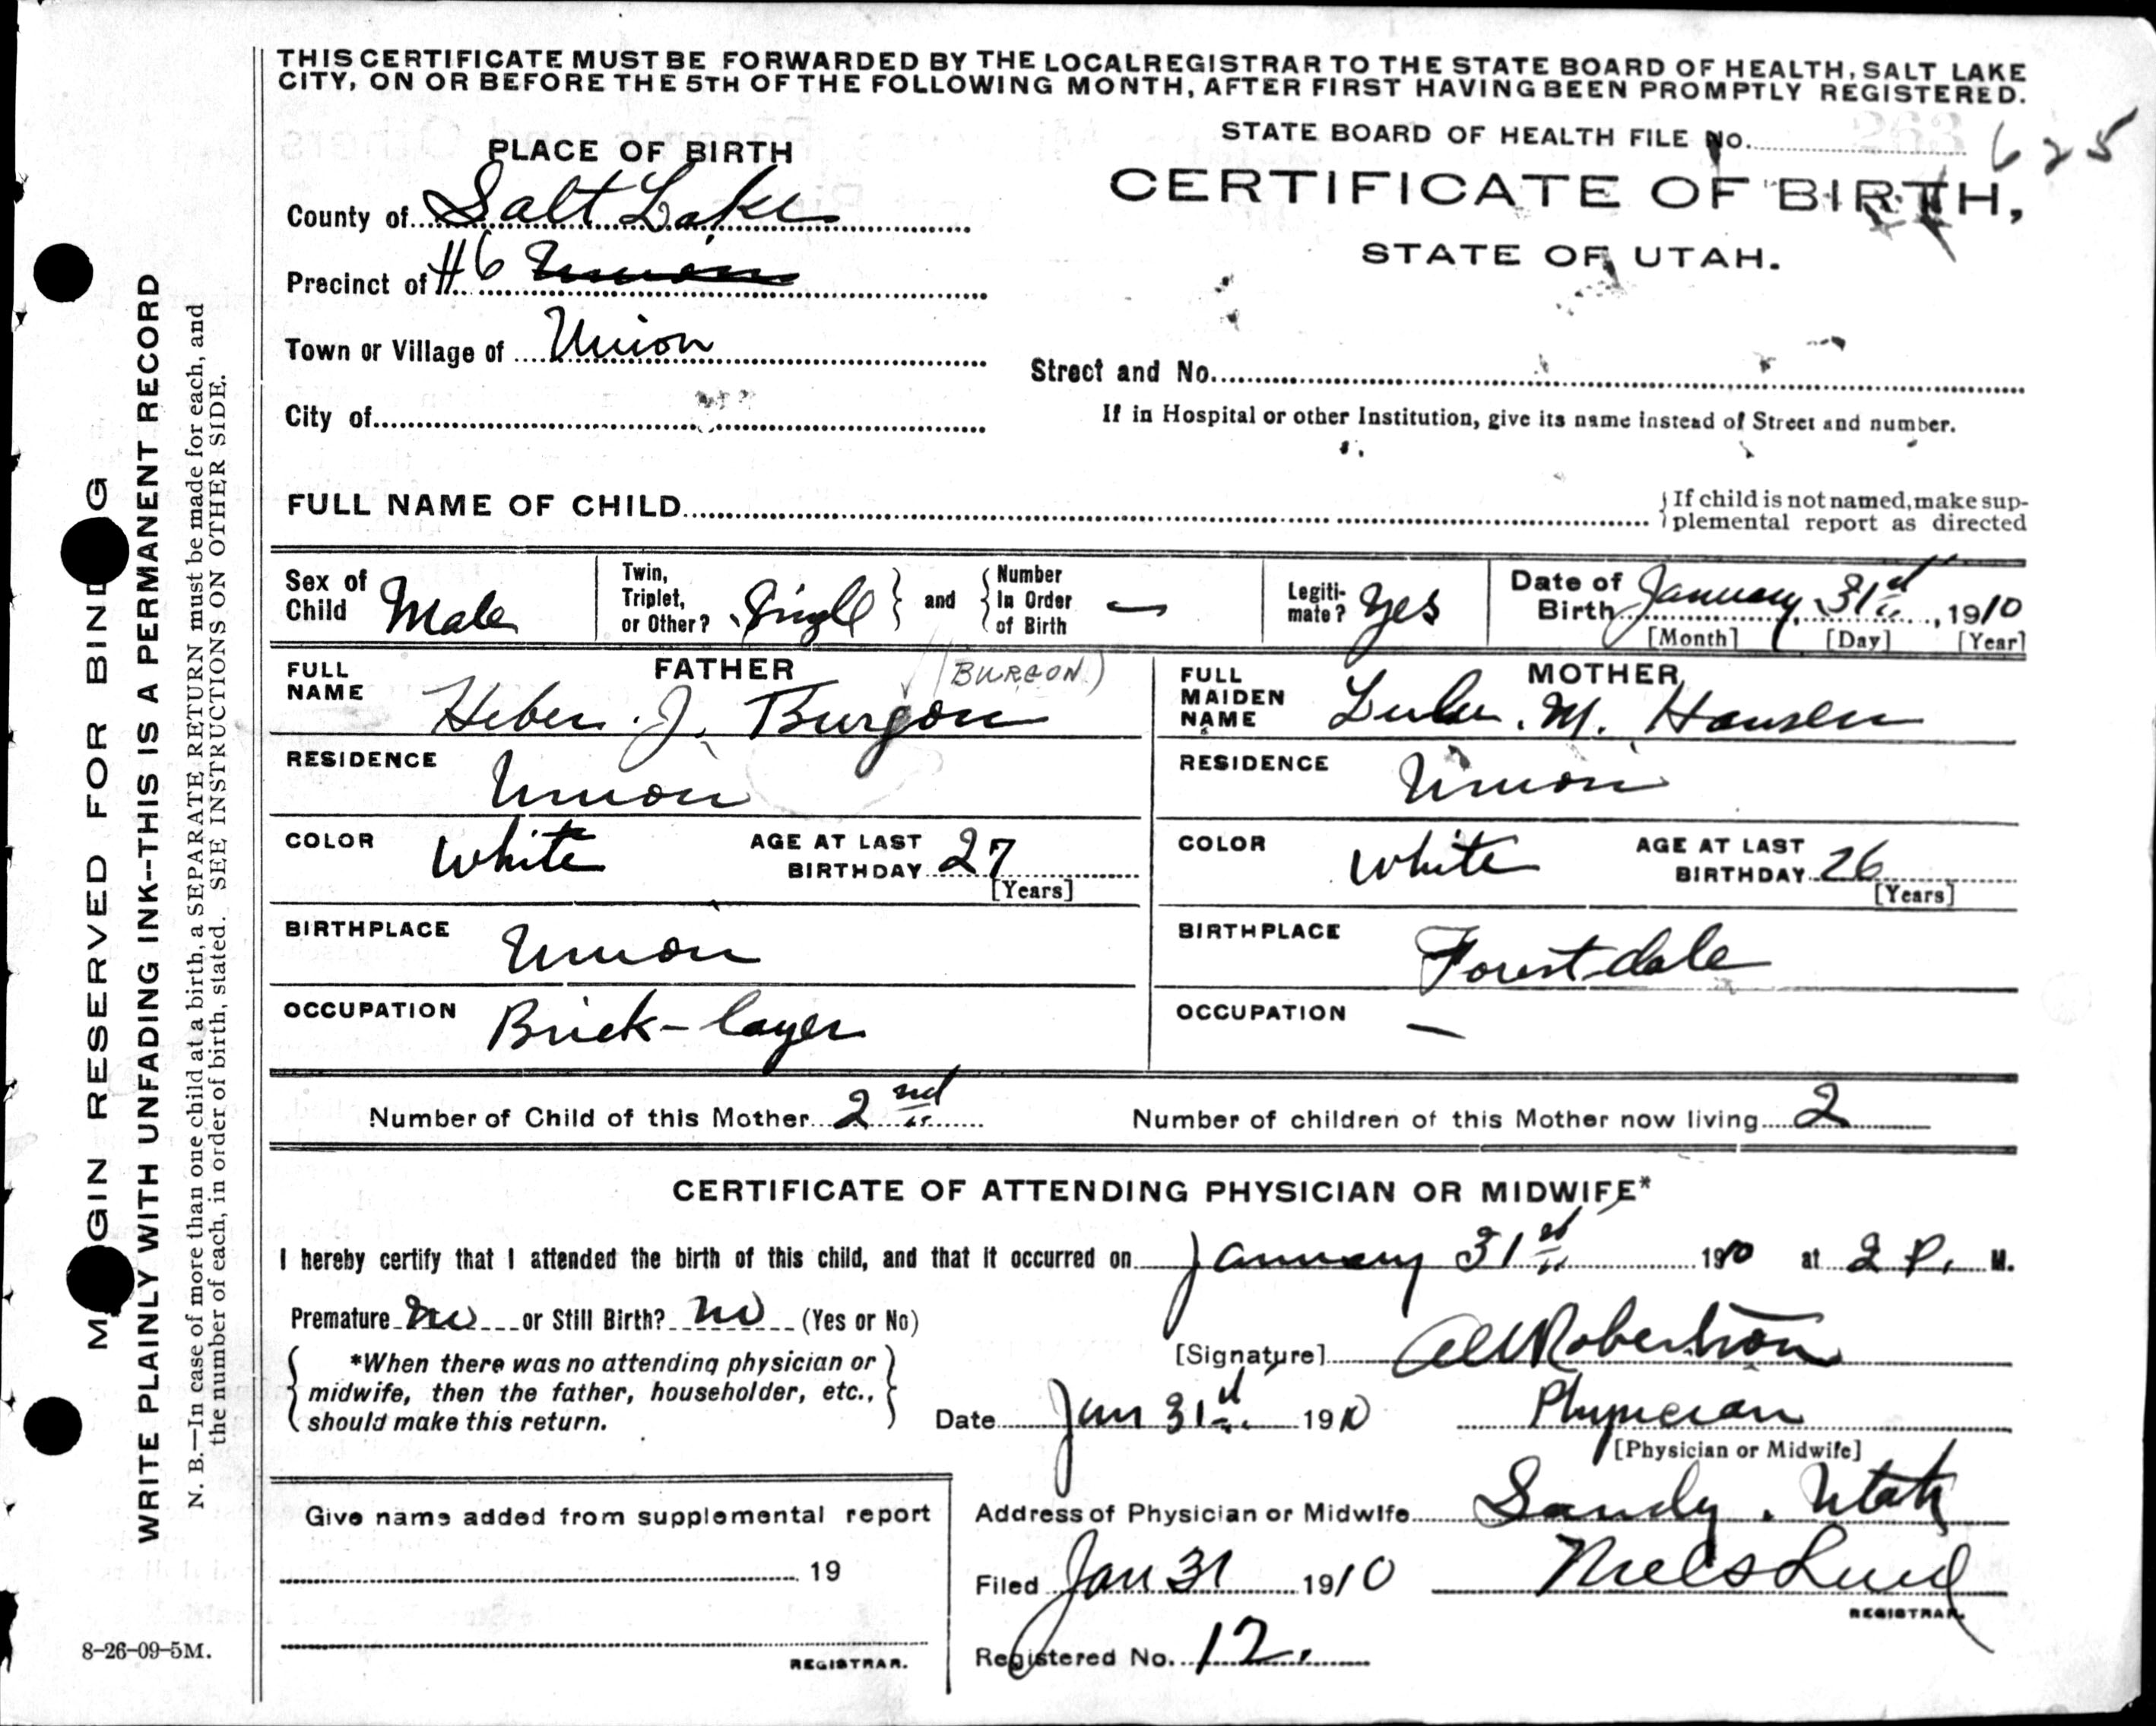 THIS CERTIFICATE MUST BE FORWARDED BY THE LOCAL REGISTRAR TO THE STATE BOARD OF HEALTH, SALT LAKE
CITY, ON OR BEFORE THE 5TH OF THE FOLLOWING MONTH, AFTER FIRST HAVING BEEN PROMPTLY REGISTERED.
STATE BOARD OF HEALTH FILE No. 625
PLACE OF BIRTH
CERTIFICATE OF BIRTH,
STATE OF UTAH.
County of Salt Lake
Precinct of #6 Union
Town or Village of Union
Street and No.
City of
If in Hospital or other Institution, give its name instead of Street and number.
FULL NAME OF CHILD
If child is not named, make sup-
plemental report as directed
Sex of Child Male
Twin, Triplet, or Other? Single and Number In Order of Birth —
Legiti-
mate? Yes
Date of Birth January 31st, 1910
[Month] [Day] [Year]
FATHER
(BURGON)
FULL NAME Heber. J. Burgon
RESIDENCE Union
COLOR White AGE AT LAST BIRTHDAY 27
[Years]
BIRTHPLACE Union
OCCUPATION Brick-layer
MOTHER
FULL MAIDEN NAME Lulu. M. Hansen
RESIDENCE Union
COLOR White AGE AT LAST BIRTHDAY 26
[Years]
BIRTHPLACE Forest-dale
OCCUPATION —
Number of Child of this Mother 2nd
Number of children of this Mother now living 2
CERTIFICATE OF ATTENDING PHYSICIAN OR MIDWIFE*
I hereby certify that I attended the birth of this child, and that it occurred on January 31st 1910 at 2 P. M.
Premature no or Still Birth? no (Yes or No)
*When there was no attending physician or
midwife, then the father, householder, etc.,
should make this return.
[Signature] Robertson
Date Jan 31st 1910 Physician
[Physician or Midwife]
Address of Physician or Midwife Sandy. Utah
Filed Jan 31 1910 Niels Lund
REGISTRAR.
Registered No. 12.
Give name added from supplemental report
19
REGISTRAR.
8-26-09-5M.
M GIN RESERVED FOR BIND G
WRITE PLAINLY WITH UNFADING INK--THIS IS A PERMANENT RECORD
N. B.—In case of more than one child at a birth, a SEPARATE RETURN must be made for each, and
the number of each, in order of birth, stated. SEE INSTRUCTIONS ON OTHER SIDE.